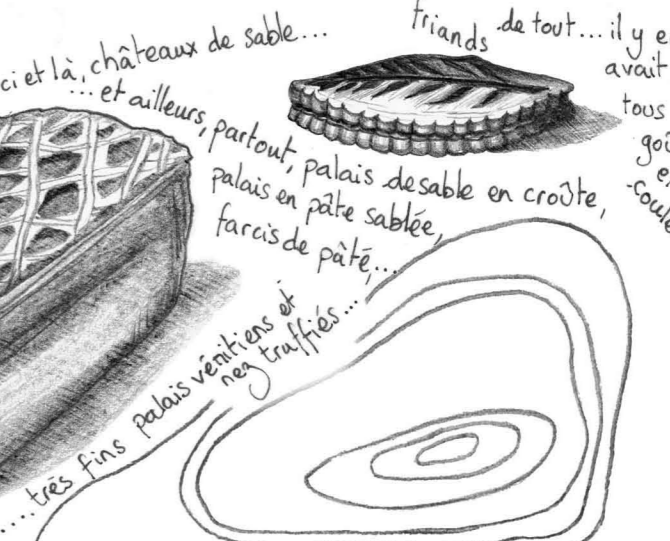 ci et là, châteaux de sable...
... et ailleurs, partout, palais de sable en croûte,
palais en pâte sablée,
farcis de pâté,...
....très fins palais vénitiens et
nez truffiés...
friands de tout... il y e
avait
tous
goû
e
-coule